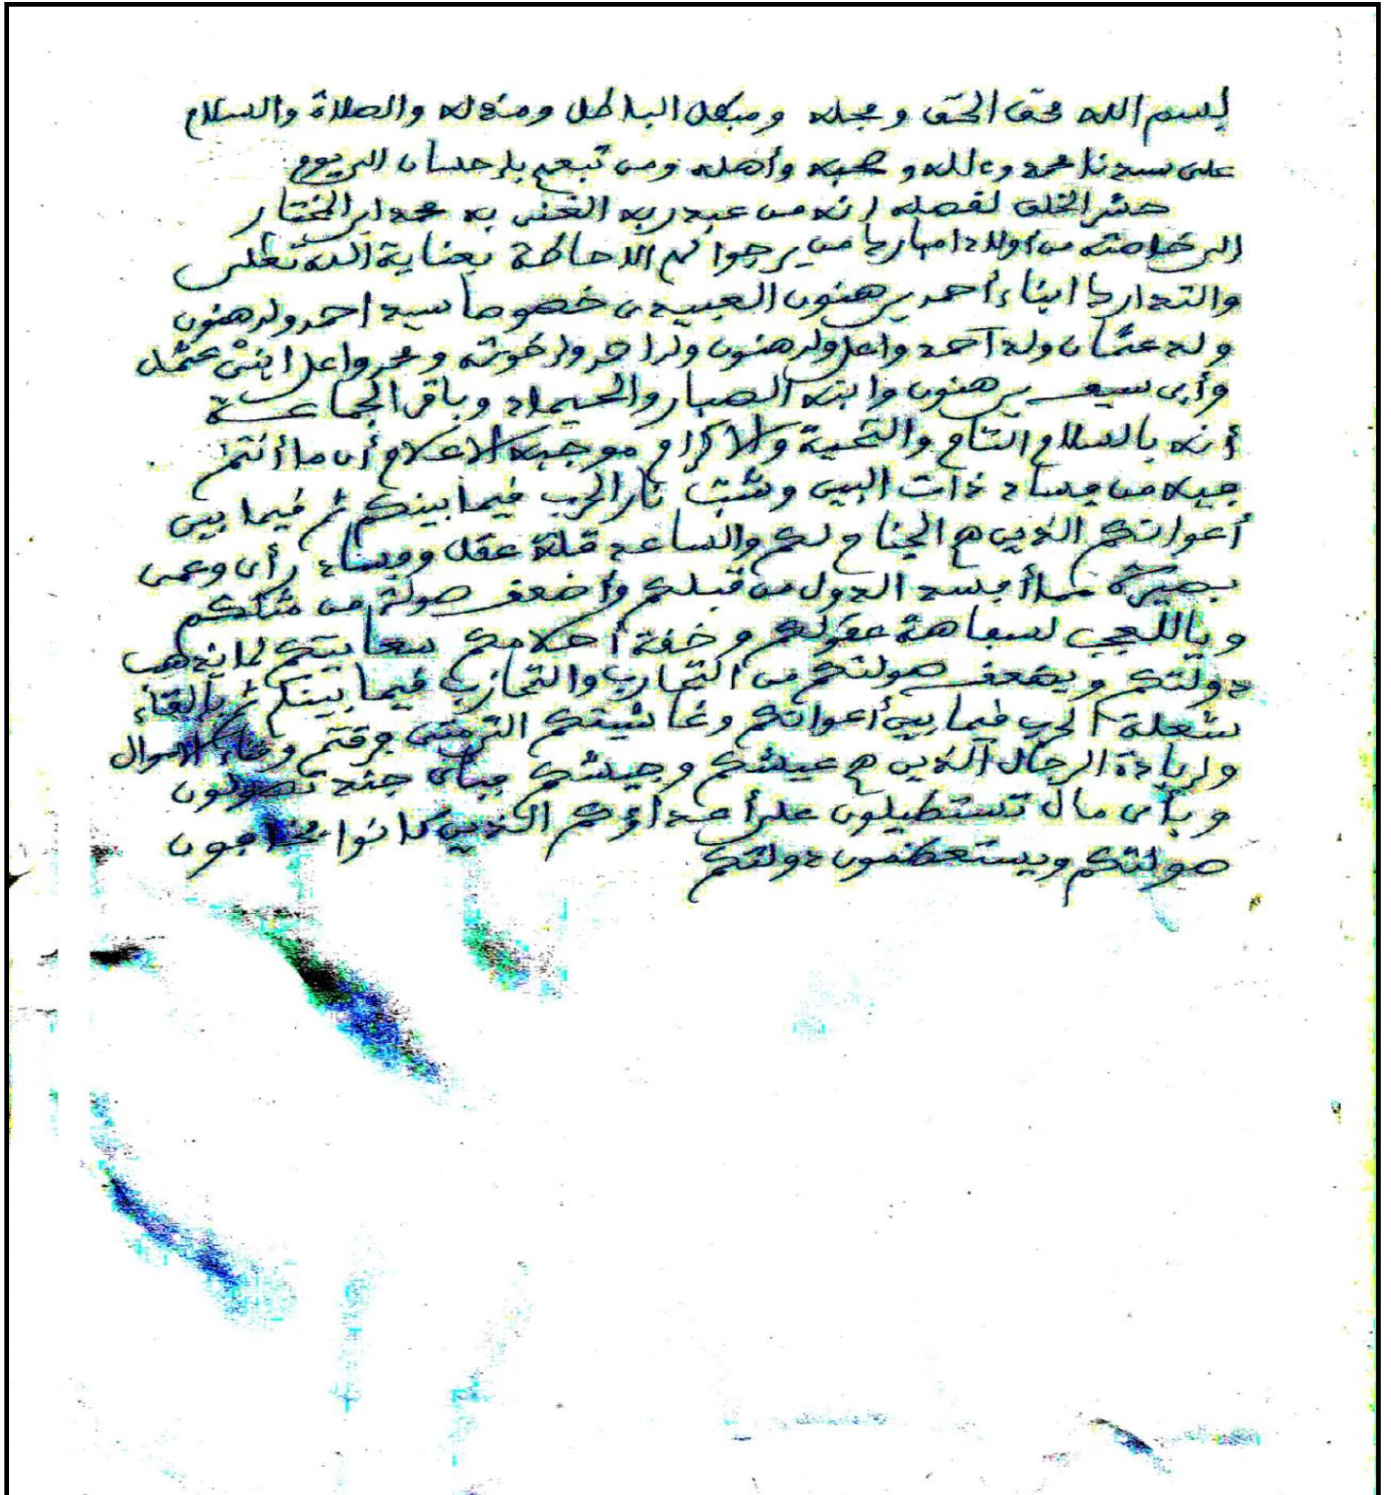 بسم الله محق الحق ومجله ومبطل الباطل ومذله والصلاة والسلام
على سيدنا محمد وءالله وصحبه وأهله ومن تبعهم بإحسان الى يوم
حشر الخلق لفصله إنه من عبد ربه الغنى به محمد بن المختار
الى خاصته من أولاد امبارك من يرجوا لهم الاحاطة بعناية الله تعلى
والتدارك ابناء أحمد بن هنون العبيدى خصوصا سيد احمد ولد هنون
ولد عثمان ولد آحمد واعل ولد هنون ولد احمد ولد خوته وعمر واعل ابنى
وأبى سيف بن هنون وابنه الصبار والحيماد وباقى الجماعة
أنه بالسلام التام والتحية والاكرام موجبه الاعلام أن ما أنتم
فيه من فساد ذات البين وشب نار الحرب فيما بينكم ثم فيما بين
أعوانكم الذين هم الجناح لكم والساعد قلة عقل وفساد رأى وعمى
بصيرة مما أفسد الدول من قبلكم وأضعف صولة من مثلكم
وياللعجب لسفاهة عقولكم وخفة أحلامكم سعايتكم لما يذهب
دولتكم ويضعف صولتكم من التحارب والتحازب فيما بينكم ثم بالقاء
شعلة الحرب فيما بين أعوانكم وغاشيتكم التى منى فرقتم وفناء الاموال
وإبادة الرجال الذين هم عيشكم وجيشكم فبأى جند تصولون
وبأى مال تستطيلون على أعداؤكم الذين كانوا يخافون
صولتكم ويستعظمون دولتكم